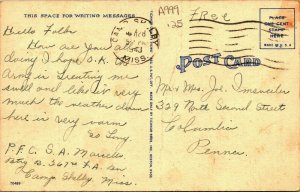 THIS SPACE FOR WRITING MESSAGES
Hello Folks
How are you all
doing I hope O.K. The
Army is treating me
swell and like it very
much the weather down
here is very warm
So Long
P.F.C. S.A. Marsello
Btry B. 367th F.A. Bn
Camp Shelby, Miss.
70489
CAMP SHELBY
MISS.
A999
1.25
Free
PLACE
ONE CENT
STAMP
HERE
MADE IN U.S.A.
POST CARD
Mr & Mrs. Joe
329 North Second Street
Columbia
Penna